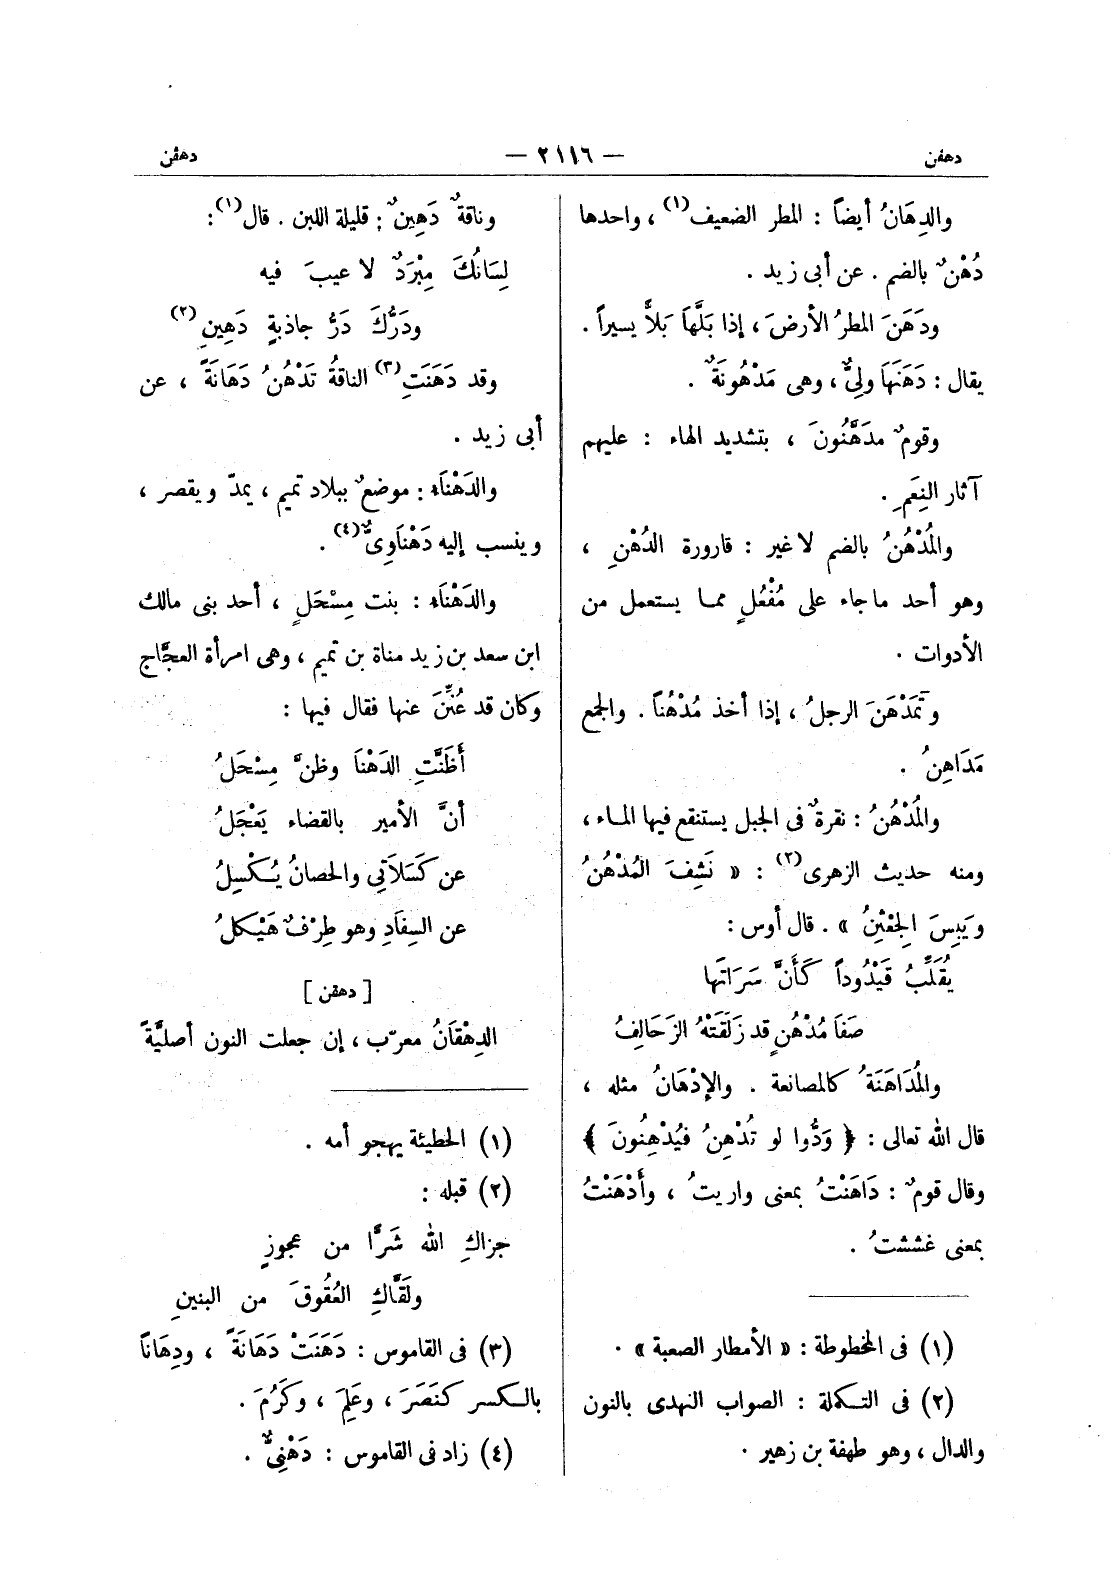 دهفن
— ٢١١٦ —
دهڤن
والدِهَانُ أيضاً : المطر الضعيف(١) ، واحدها
دُهْنٌ بالضم . عن أبى زيد .
ودَهَنَ المطرُ الأرضَ ، إذا بَلَّهاَ بَلاًّ يسيراً .
يقال : دَهَنَهَا ولِىٌّ ، وهى مَدْهُونَةٌ .
وقومٌ مدَهَّنُونَ ، بتشديد الهاء : عليهم
آثار النِعَمِ .
والمُدْهُنُ بالضم لا غير : قارورة الدُهْنِ ،
وهو أحد ما جاء على مُفْعُلٍ مما يستعمل من
الأدوات .
وتَمَدْهَنَ الرجلُ ، إذا أخذ مُدْهُناً . والجمع
مَدَاهِنُ .
والمُدْهُنُ : نقرةٌ فى الجبل يستنقع فيها الماء ،
ومنه حديث الزهرى(٢) : « نَشِفَ المُدْهُنُ
ويَبِسَ الجِعْثِنُ » . قال أوس :
يُقَلِّبُ قَيْدُوداً كَأَنَّ سَرَاتَها
صَفَا مُدْهُنٍ قد زَلَقَتْهُ الزَحَالِفُ
والمُدَاهَنَةُ كالمصانعة . والإدْهَانُ مثله ،
قال الله تعالى : ﴿ وَدُّوا لو تُدْهِنُ فيُدْهِنُونَ ﴾
وقال قومٌ : دَاهَنْتُ بمعنى واريتُ ، وأَدْهَنْتُ
بمعنى غششتُ .
(١) فى المخطوطة : « الأمطار الصعبة » .
(٢) فى التكملة : الصواب النهدى بالنون
والدال ، وهو طهفة بن زهير .
وناقةٌ دَهِينٌ : قليلة اللبن . قال(١) :
لِسَانُكَ مِبْرَدٌ لا عيبَ فيه
ودَرُّكَ دَرُّ جاذبةٍ دَهِينِ(٢)
وقد دَهَنَتِ(٣) الناقةُ تَدْهُنُ دَهَانَةً ، عن
أبى زيد .
والدَهْنَاء : موضعٌ ببلاد تميم ، يمدّ ويقصر ،
وينسب إليه دَهْنَاوِىٌّ(٤) .
والدَهْنَاء : بنت مِسْحَلٍ ، أحد بنى مالك
ابن سعد بن زيد مناة بن تميم ، وهى امرأة العجَّاج
وكان قد عُنِّنَ عنها فقال فيها :
أَظَنَّتِ الدَهْنَا وظنَّ مِسْحَلُ
أنَّ الأمير بالقضاء يَعْجَلُ
عن كَسَلاَتِى والحصانُ يُكْسِلُ
عن السِفَادِ وهو طِرْفٌ هَيْكَلُ
[ دهقن ]
الدِهْقَانُ معرّب ، إن جعلت النون أصليَّةً
(١) الحطيئة يهجو أمه .
(٢) قبله :
جزاكِ الله شَرًّا من عجوزٍ
ولَقَّاكِ العُقُوقَ من البنينِ
(٣) فى القاموس : دَهَنَتْ دَهَانَةً ، ودِهَاناً
بالكسر كنَصَرَ ، وعَلِمَ ، وكَرُمَ .
(٤) زاد فى القاموس : دَهْنِىٌّ .